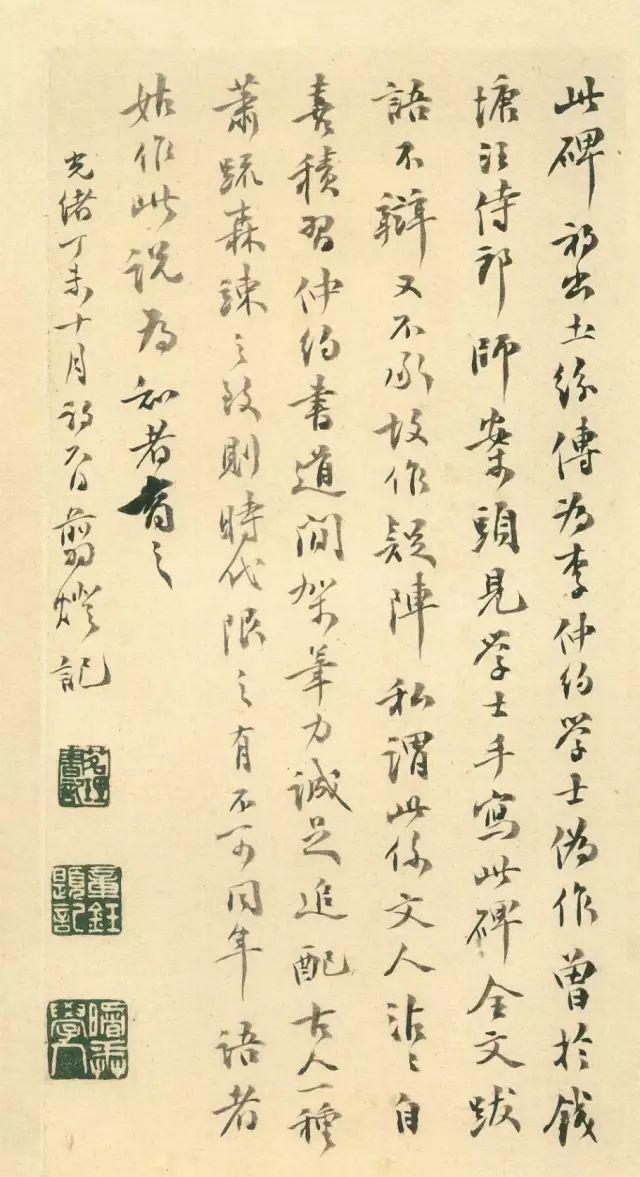 此碑初出土絲傳為李仲約學士偽作曾於錢
塘汪侍郎師案頭見學士手寫此碑全文跋
語不辯又不承故作疑陣私謂此係文人沾沾自
喜積習仲約書道間架筆力誠足追配古人一種
蕭疏森竦之致則時代限之有不可同年語者
姑作此說為知者質之
光緒丁未十月初六日翦燈記
茗理
書記
章鈺
題記
學人